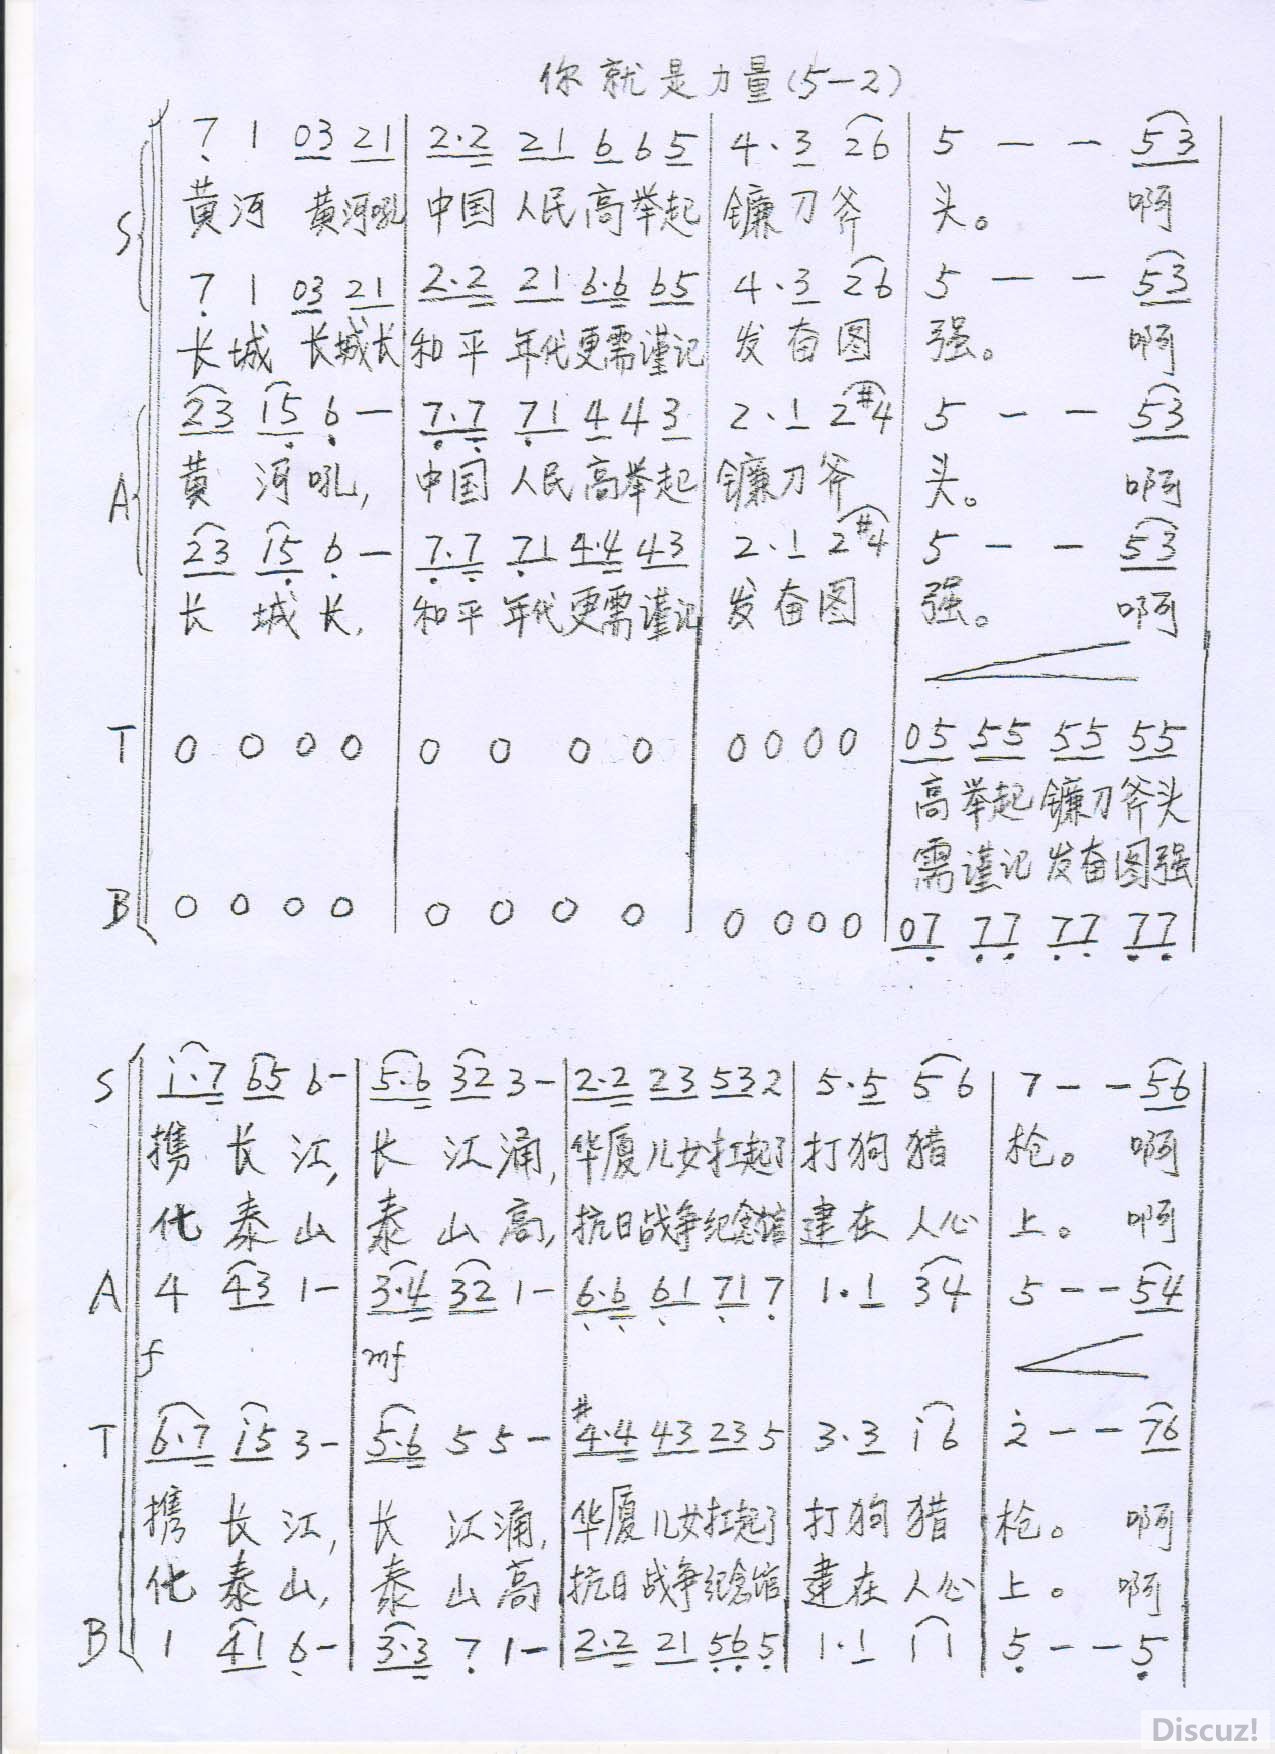 你就是力量(5-2)
7 1 03 21 | 2·2 21 6 6 5 | 4·3 26 | 5 — — 53
S
黄河 黄河吼 中国 人民 高举起 镰刀斧 头。 啊
7 1 03 21 | 2·2 21 6·6 65 | 4·3 26 | 5 — — 53
长城 长城长 和平 年代更需谨记 发奋图 强。 啊
23 15 6 — | 7·7 71 4 4 3 | 2·1 2#4 | 5 — — 53
A
黄 河吼, 中国 人民 高举起 镰刀斧 头。 啊
23 15 6 — | 7·7 71 4·4 43 | 2·1 2#4 | 5 — — 53
长 城长, 和平 年代更需谨记 发奋图 强。 啊
T 0 0 0 0 | 0 0 0 0 | 0 0 0 0 | 05 55 55 55
高举起 镰刀斧头
需谨记 发奋图强
B 0 0 0 0 | 0 0 0 0 | 0 0 0 0 | 07 77 77 77
S i·7 65 6— | 5·6 32 3— | 2·2 23 532 | 5·5 56 | 7 — — 56
携长江, 长江涌, 华厦儿女扛起了 打狗猎 枪。 啊
化泰山 泰山高, 抗日战争纪念馆 建在人心 上。 啊
A 4 43 1— | 3·4 32 1— | 6·6 61 71 7 | 1·1 34 | 5 — — 54
f mf
T 6·7 i5 3— | 5·6 5 5— | #4·4 43 23 5 | 3·3 i6 | 2 — — 76
携长江, 长江涌, 华厦儿女扛起了 打狗猎 枪。 啊
化泰山, 泰山高 抗日战争纪念馆 建在人心 上。 啊
B 1 41 6— | 3·3 7 1— | 2·2 21 56 5 | 1·1 11 | 5 — — 5
Discuz!